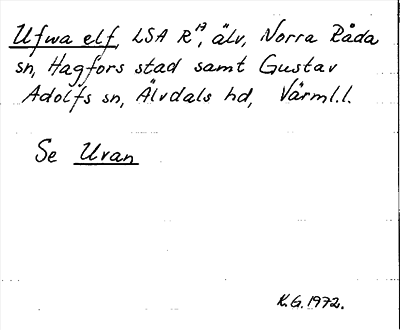 Ufwa elf, LSA R¹⁷, älv, Norra Råda
sn, Hagfors stad samt Gustav
Adolfs sn, Älvdals hd, Värml.l.
Se Uvan
K.G. 1972.